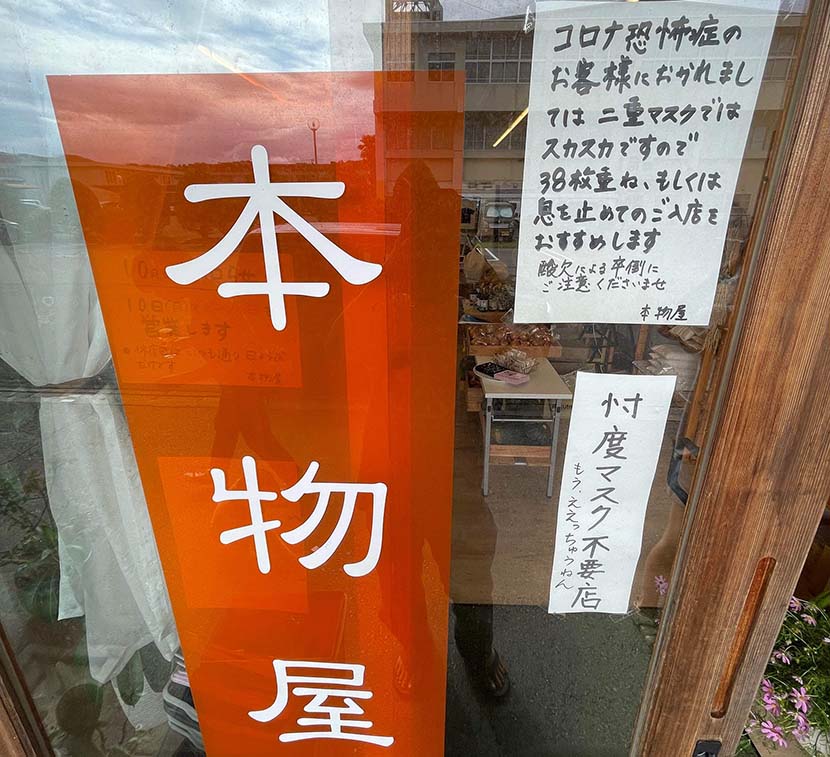 本物屋
コロナ恐怖症の
お客様におかれまし
ては 二重マスクでは
スカスカですので
38枚重ね、もしくは
息を止めてのご入店を
おすすめします
酸欠による卒倒に
ご注意くださいませ
本物屋
忖度マスク不要店
もう、ええっちゅうねん
10日
営業します
本物屋